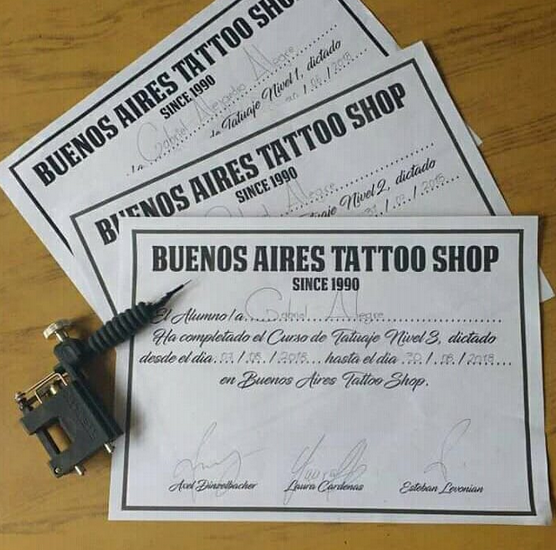 BUENOS AIRES TATTOO SHOP
SINCE 1990
Gabriel Alejandro Alegre
de Tatuaje Nivel 1, dictado
BUENOS AIRES TATTOO SHOP
SINCE 1990
Alegre
Tatuaje Nivel 2, dictado
BUENOS AIRES TATTOO SHOP
SINCE 1990
El Alumno/a Gabriel Alegre
Ha completado el Curso de Tatuaje Nivel 3, dictado
desde el dia 03 / 08 / 2018 hasta el dia 30 / 08 / 2018
en Buenos Aires Tattoo Shop.
Axel Dinzelbacher Laura Cardenas Esteban Levonian